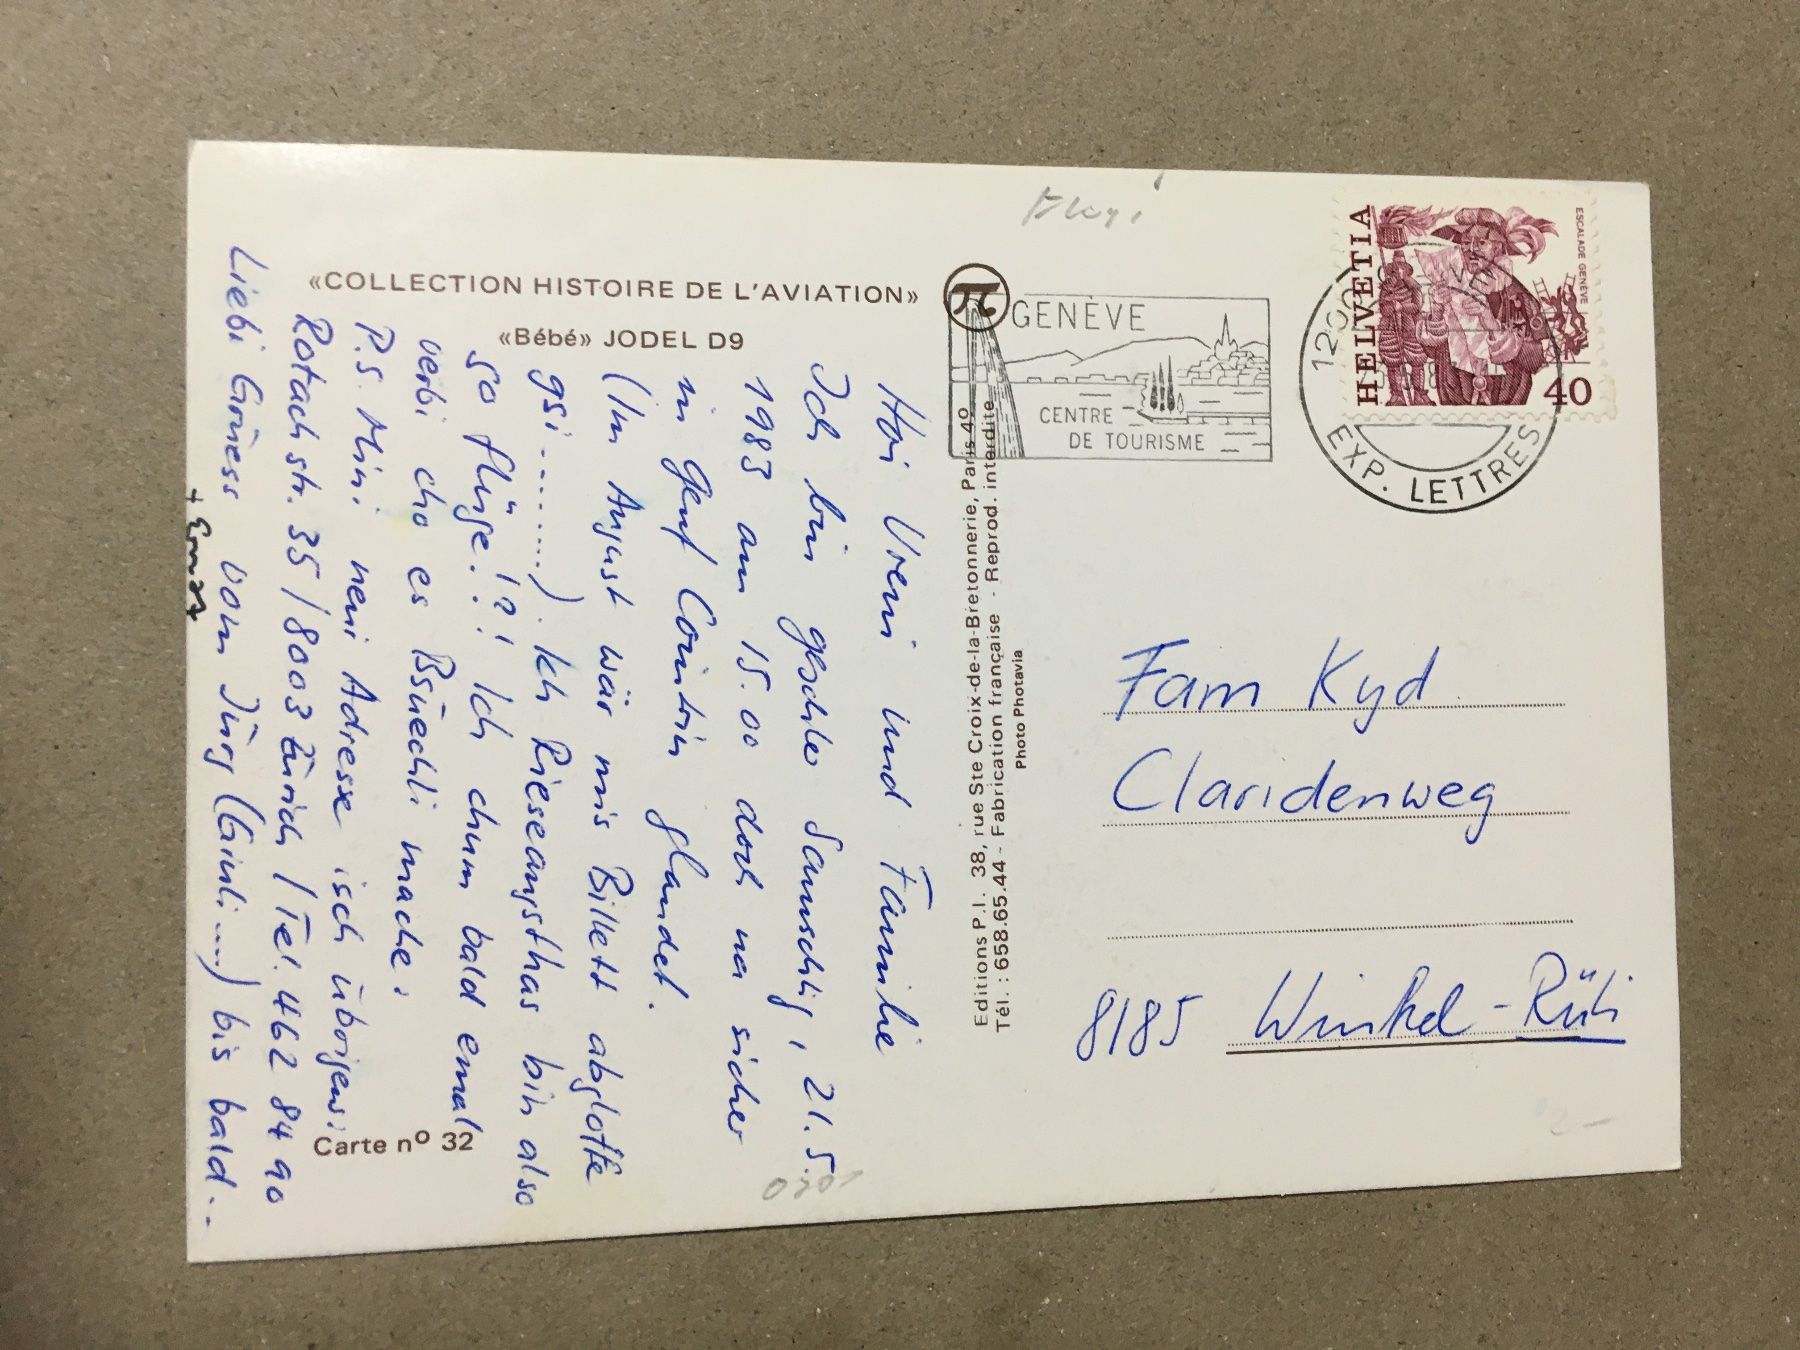 «COLLECTION HISTOIRE DE L'AVIATION»
«Bébé» JODEL D9
Hoi Vreni und Familie
Ich bin geschter Samschtig, 21.5.
1983 am 15.00 doch na sicher
in Genf Cointrin glandet.
(Im August wär mis Billett abgloffe
gsi........). Ich Rieseangsthas bin also
so flüge!?! Ich chum bald emal
verbi cho es Bsüechli mache.
P.S. Mini neui Adresse isch übrigens:
Rotachstr. 35/8003 Zürich / Tel. 462 84 90
Liebi Grüess vom Jürg (Giuli....) bis bald...
Carte nº 32
Editions P.I. 38, rue Ste Croix-de-la-Bretonnerie, Paris 4o
Tél.: 658.65.44 - Fabrication française - Reprod. interdite
Photo Photavia
GENÈVE
CENTRE
DE TOURISME
HELVETIA
ESCALADE GENÈVE
40
EXP. LETTRES
Fam Kyd
Claridenweg
8185 Winkel-Rüti